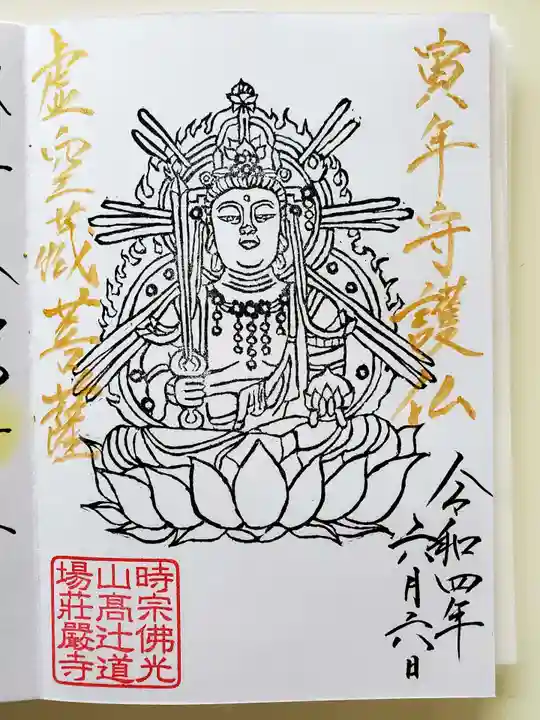 寅年守護仏
虚空蔵菩薩
令和四年
六月六日
時宗佛光
山髙辻道
場莊嚴寺